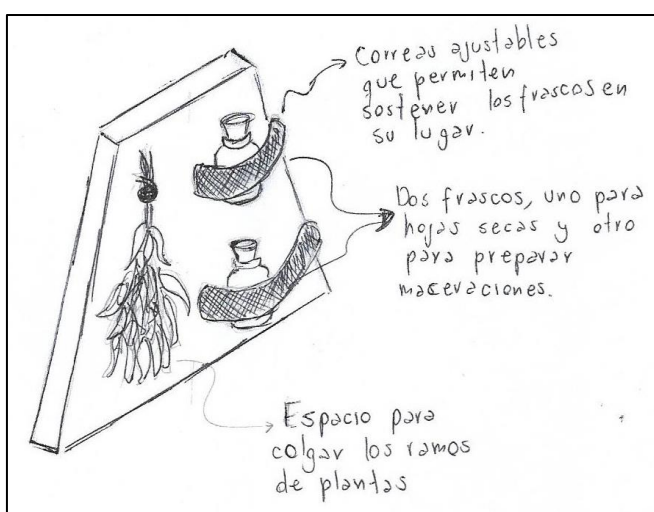 Correas ajustables
que permiten
sostener los frascos en
su lugar.
Dos frascos, uno para
hojas secas y otro
para preparar
maceraciones.
Espacio para
colgar los ramos
de plantas